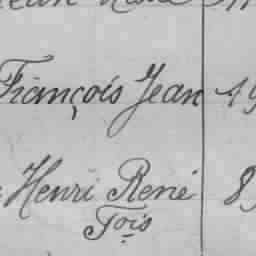 François Jean 19
Henri René 8
Fois